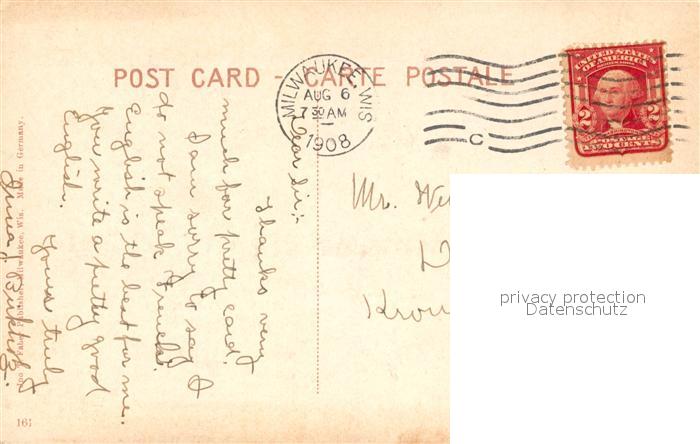 POST CARD - CARTE POSTALE
MILWAUKEE, WIS.
AUG 6
7 30 AM
1908
C
UNITED STATES
OF AMERICA
2 2
POSTAGE
TWO CENTS
Dear Sir:-
Thanks very
much for pretty card.
I am sorry to say I
do not speak French.
English is the best for me.
You write a pretty good
English.
Yours truly
Mr.
privacy protection
Datenschutz
Publisher, Milwaukee, Wis. Made in Germany.
161